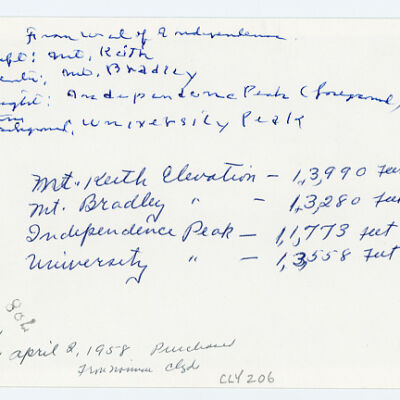 From west of Independence
Left: Mt. Keith
Center: Mt. Bradley
Right: Independence Peak (foreground)
background, University Peak
Mt. Keith Elevation — 13,990 feet
Mt. Bradley " — 13,280 feet
Independence Peak — 11,773 feet
University " — 13,558 feet
806
april 2, 1958 Purchased
From Norman Clyde
CLY 206